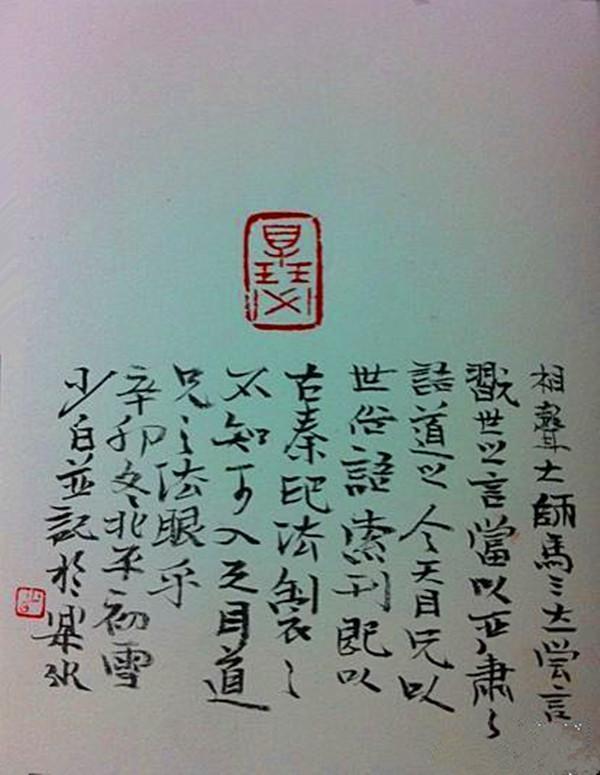 相聲大師馬三立嘗言
戲世之言當以严肅之
語道之今天目兄以
世俗語索刊既以
古秦印法製之
不知可入天目道
兄之法眼乎
辛卯冬北平初雪
少白並記於樂